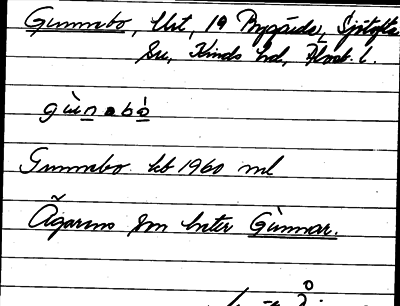 Gunnabo, Urt, 19 Bygårda, Sjötofta
Sn, Kinds hd, Älvsb. l.
gùn a bò
Gunnabo kb 1960 ml
Ägarens son heter Gùnnar.